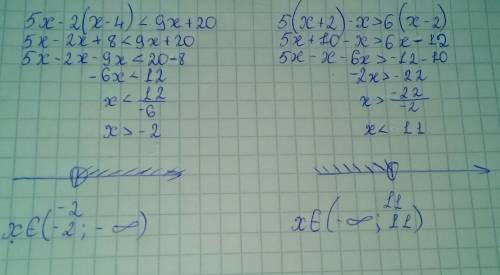 5x-2(x-4)<9x+20
5x-2x+8<9x+20
5x-2x-9x<20-8
-6x<12
x<12/-6
x>-2
-2
x∈(-2;-∞)
5(x+2)-x>6(x-2)
5x+10-x>6x-12
5x-x-6x>-12-10
-2x>-22
x>-22/-2
x<11
11
x∈(-∞;11)